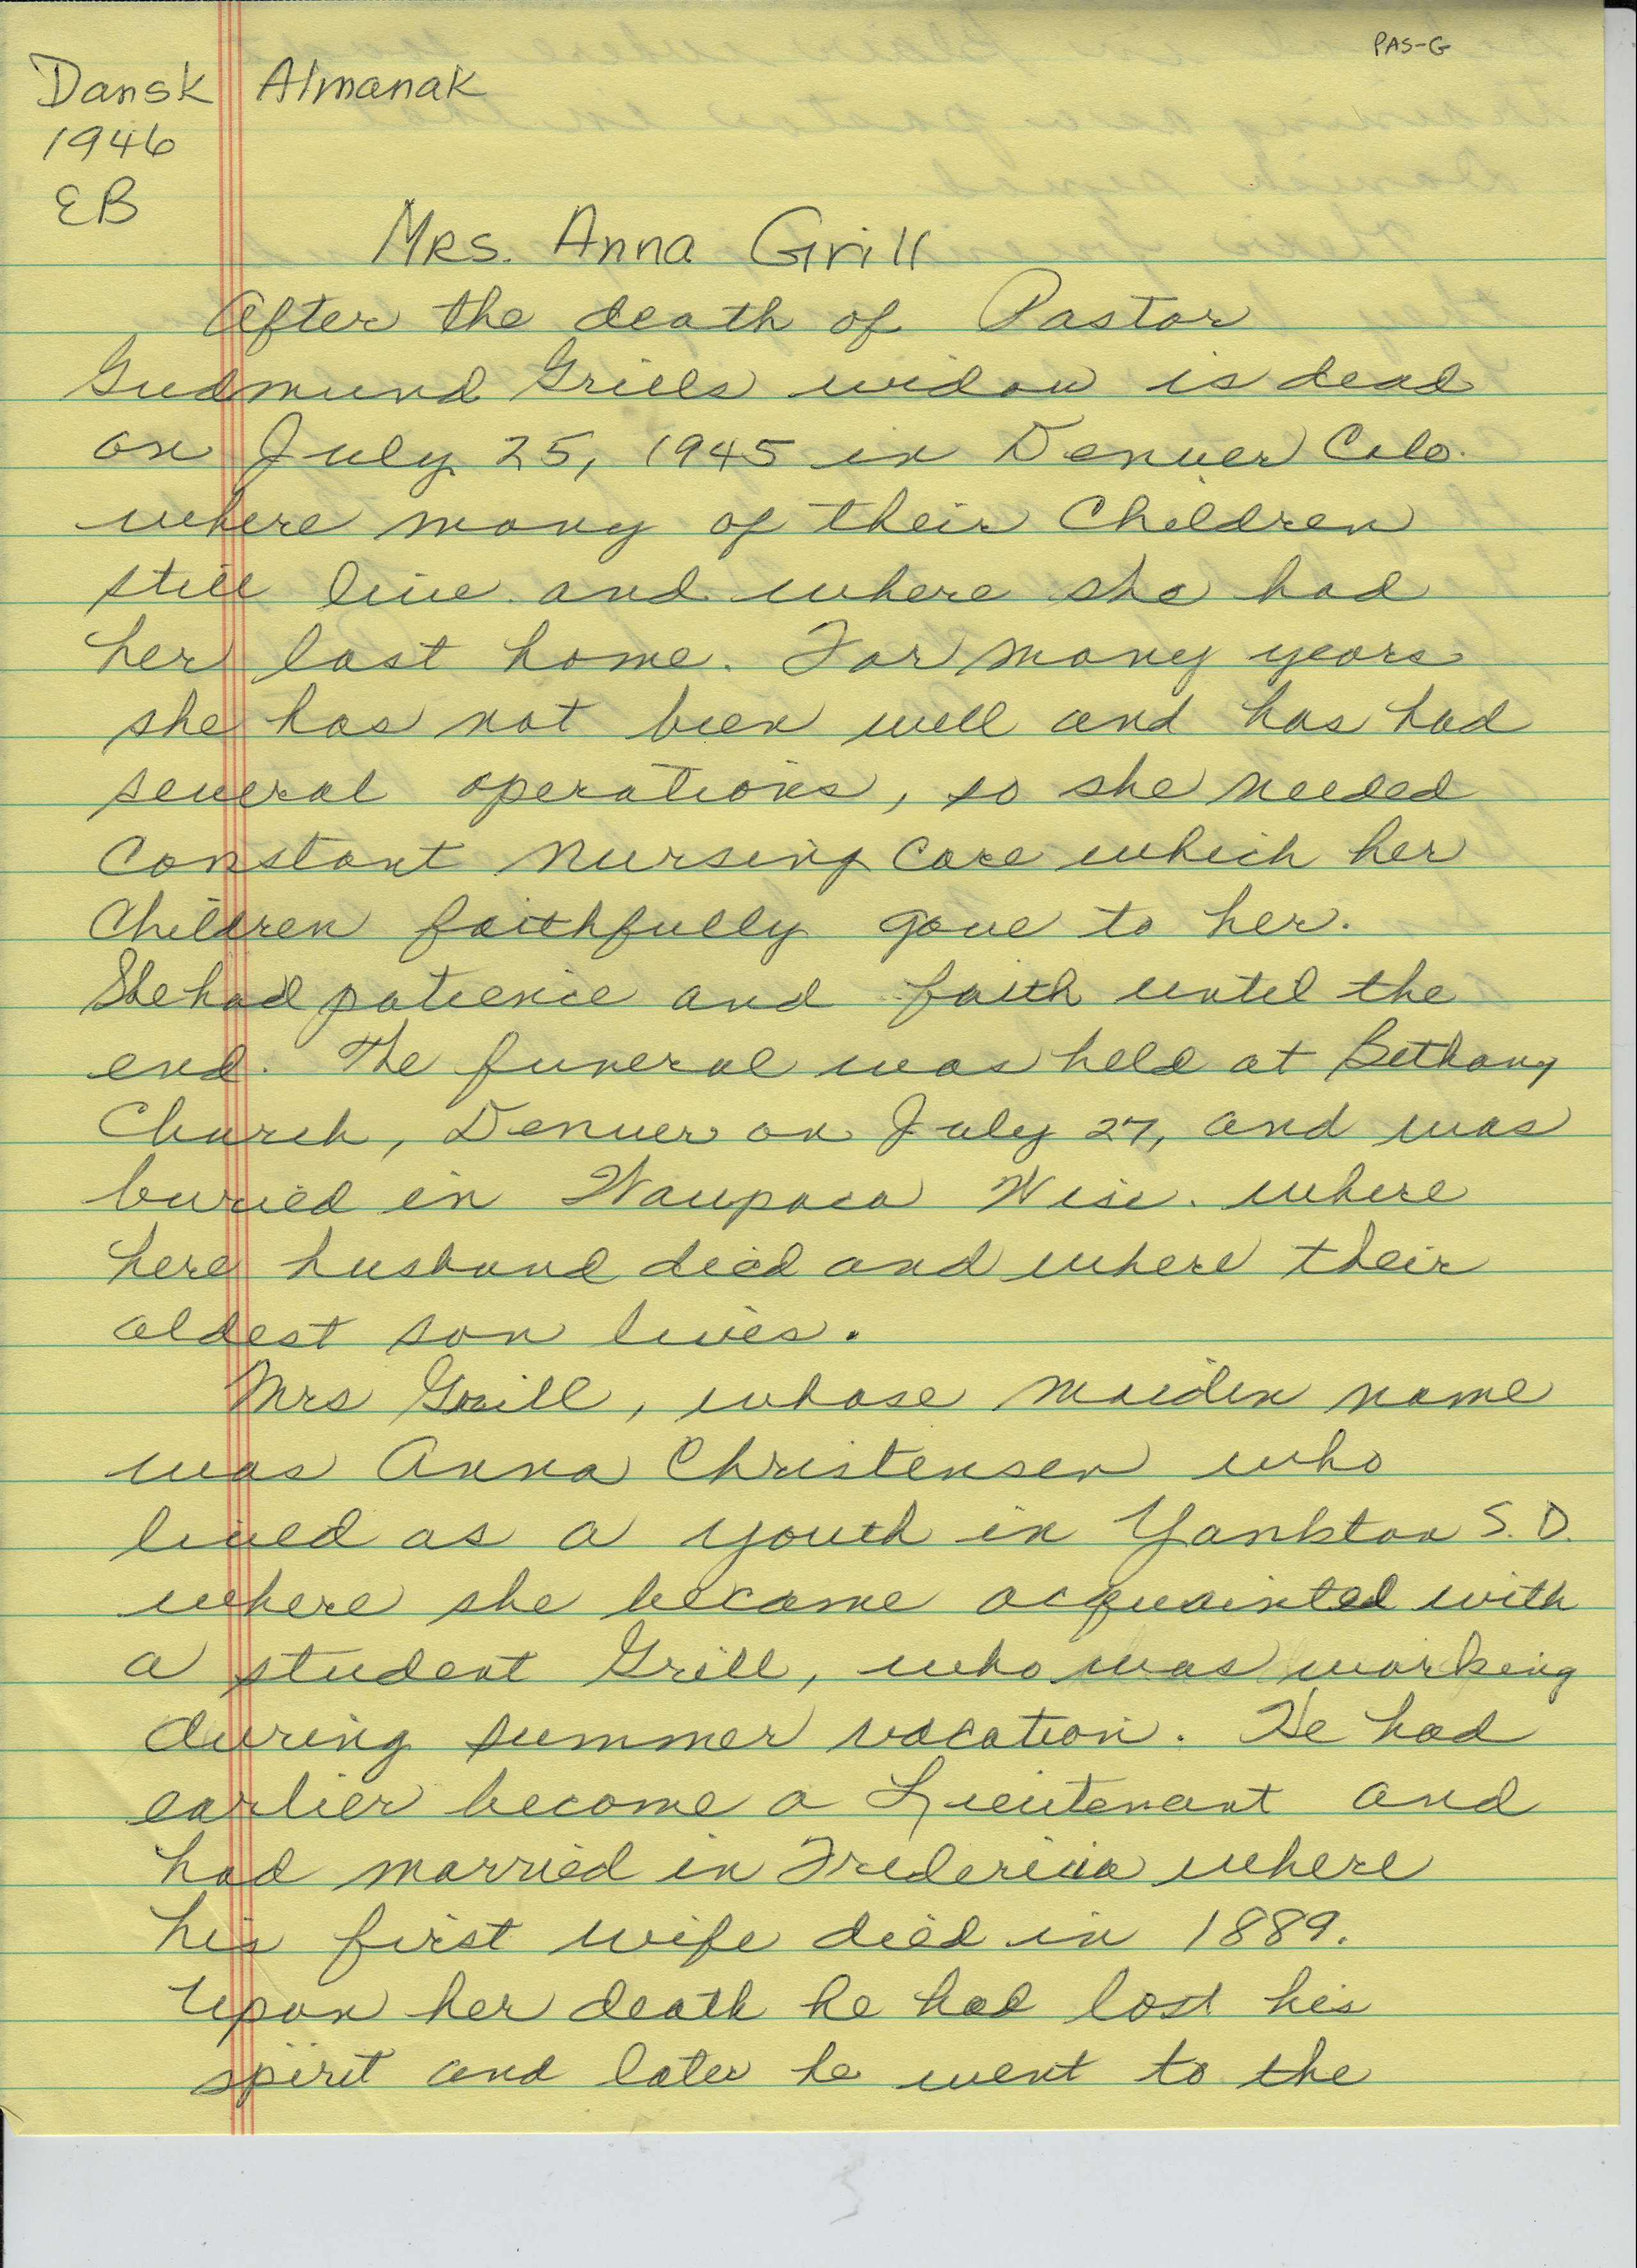 PAS-G
Dansk Almanak
1946
EB
Mrs. Anna Grill
After the death of Pastor
Gudmund Grills widow is dead
on July 25, 1945 in Denver Colo.
where many of their Children
still live and where she had
her last home. For many years
she has not been well and has had
several operations, so she needed
Constant Nursing Care which her
Children faithfully gave to her.
She had patience and faith until the
end. The funeral was held at Bethany
Church, Denver on July 27, and was
buried in Waupaca Wisc. where
here husband died and where their
oldest son lives.
Mrs Grill, whose maiden name
was Anna Christensen who
lived as a youth in Yankton S.D.
where she became acquainted with
a student Grill, who was working
during summer vacation. He had
earlier become a Lieutenant and
had married in Fredericia where
his first wife died in 1889.
Upon her death he had lost his
spirit and later he went to the